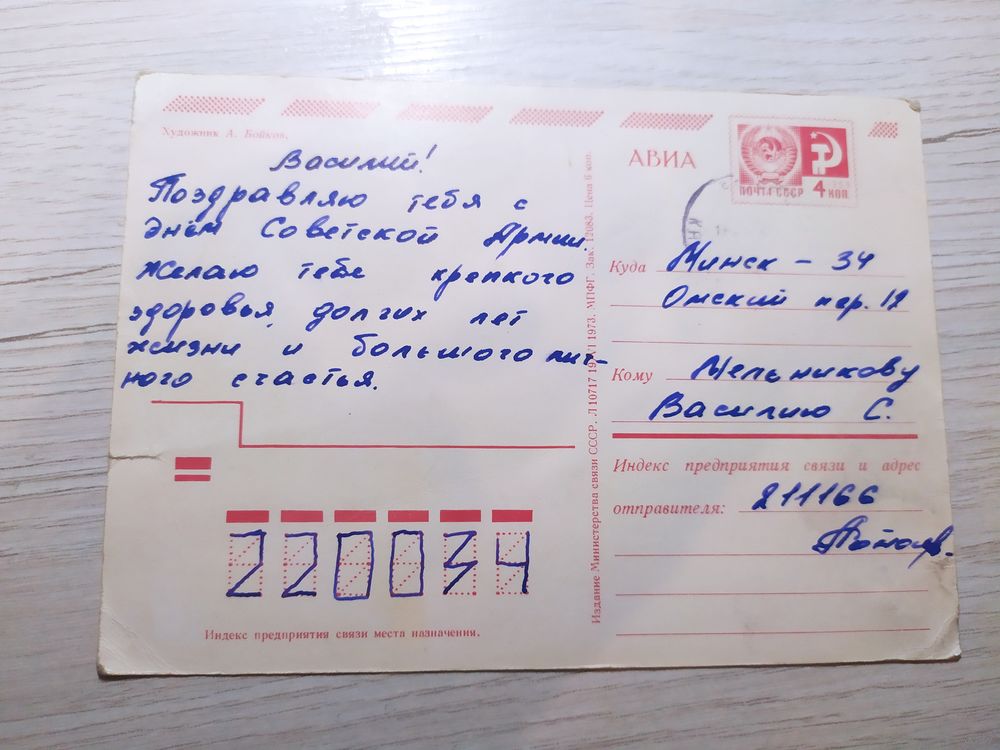 Художник А. Бойков.
Василий!
Поздравляю тебя с
днём Советской Армии.
Желаю тебе крепкого
здоровья, долгих лет
жизни и большого лич-
ного счастья.
220034
Индекс предприятия связи места назначения.
Издание Министерства связи СССР. Л 10717 19/VI 1973. МПФГ. Зак. 12083. Цена 6 коп.
АВИА
ПОЧТА СССР
4 КОП
Куда Минск - 34
Омский пер. 12
Кому Мельникову
Василию С.
Индекс предприятия связи и адрес
отправителя: 211166